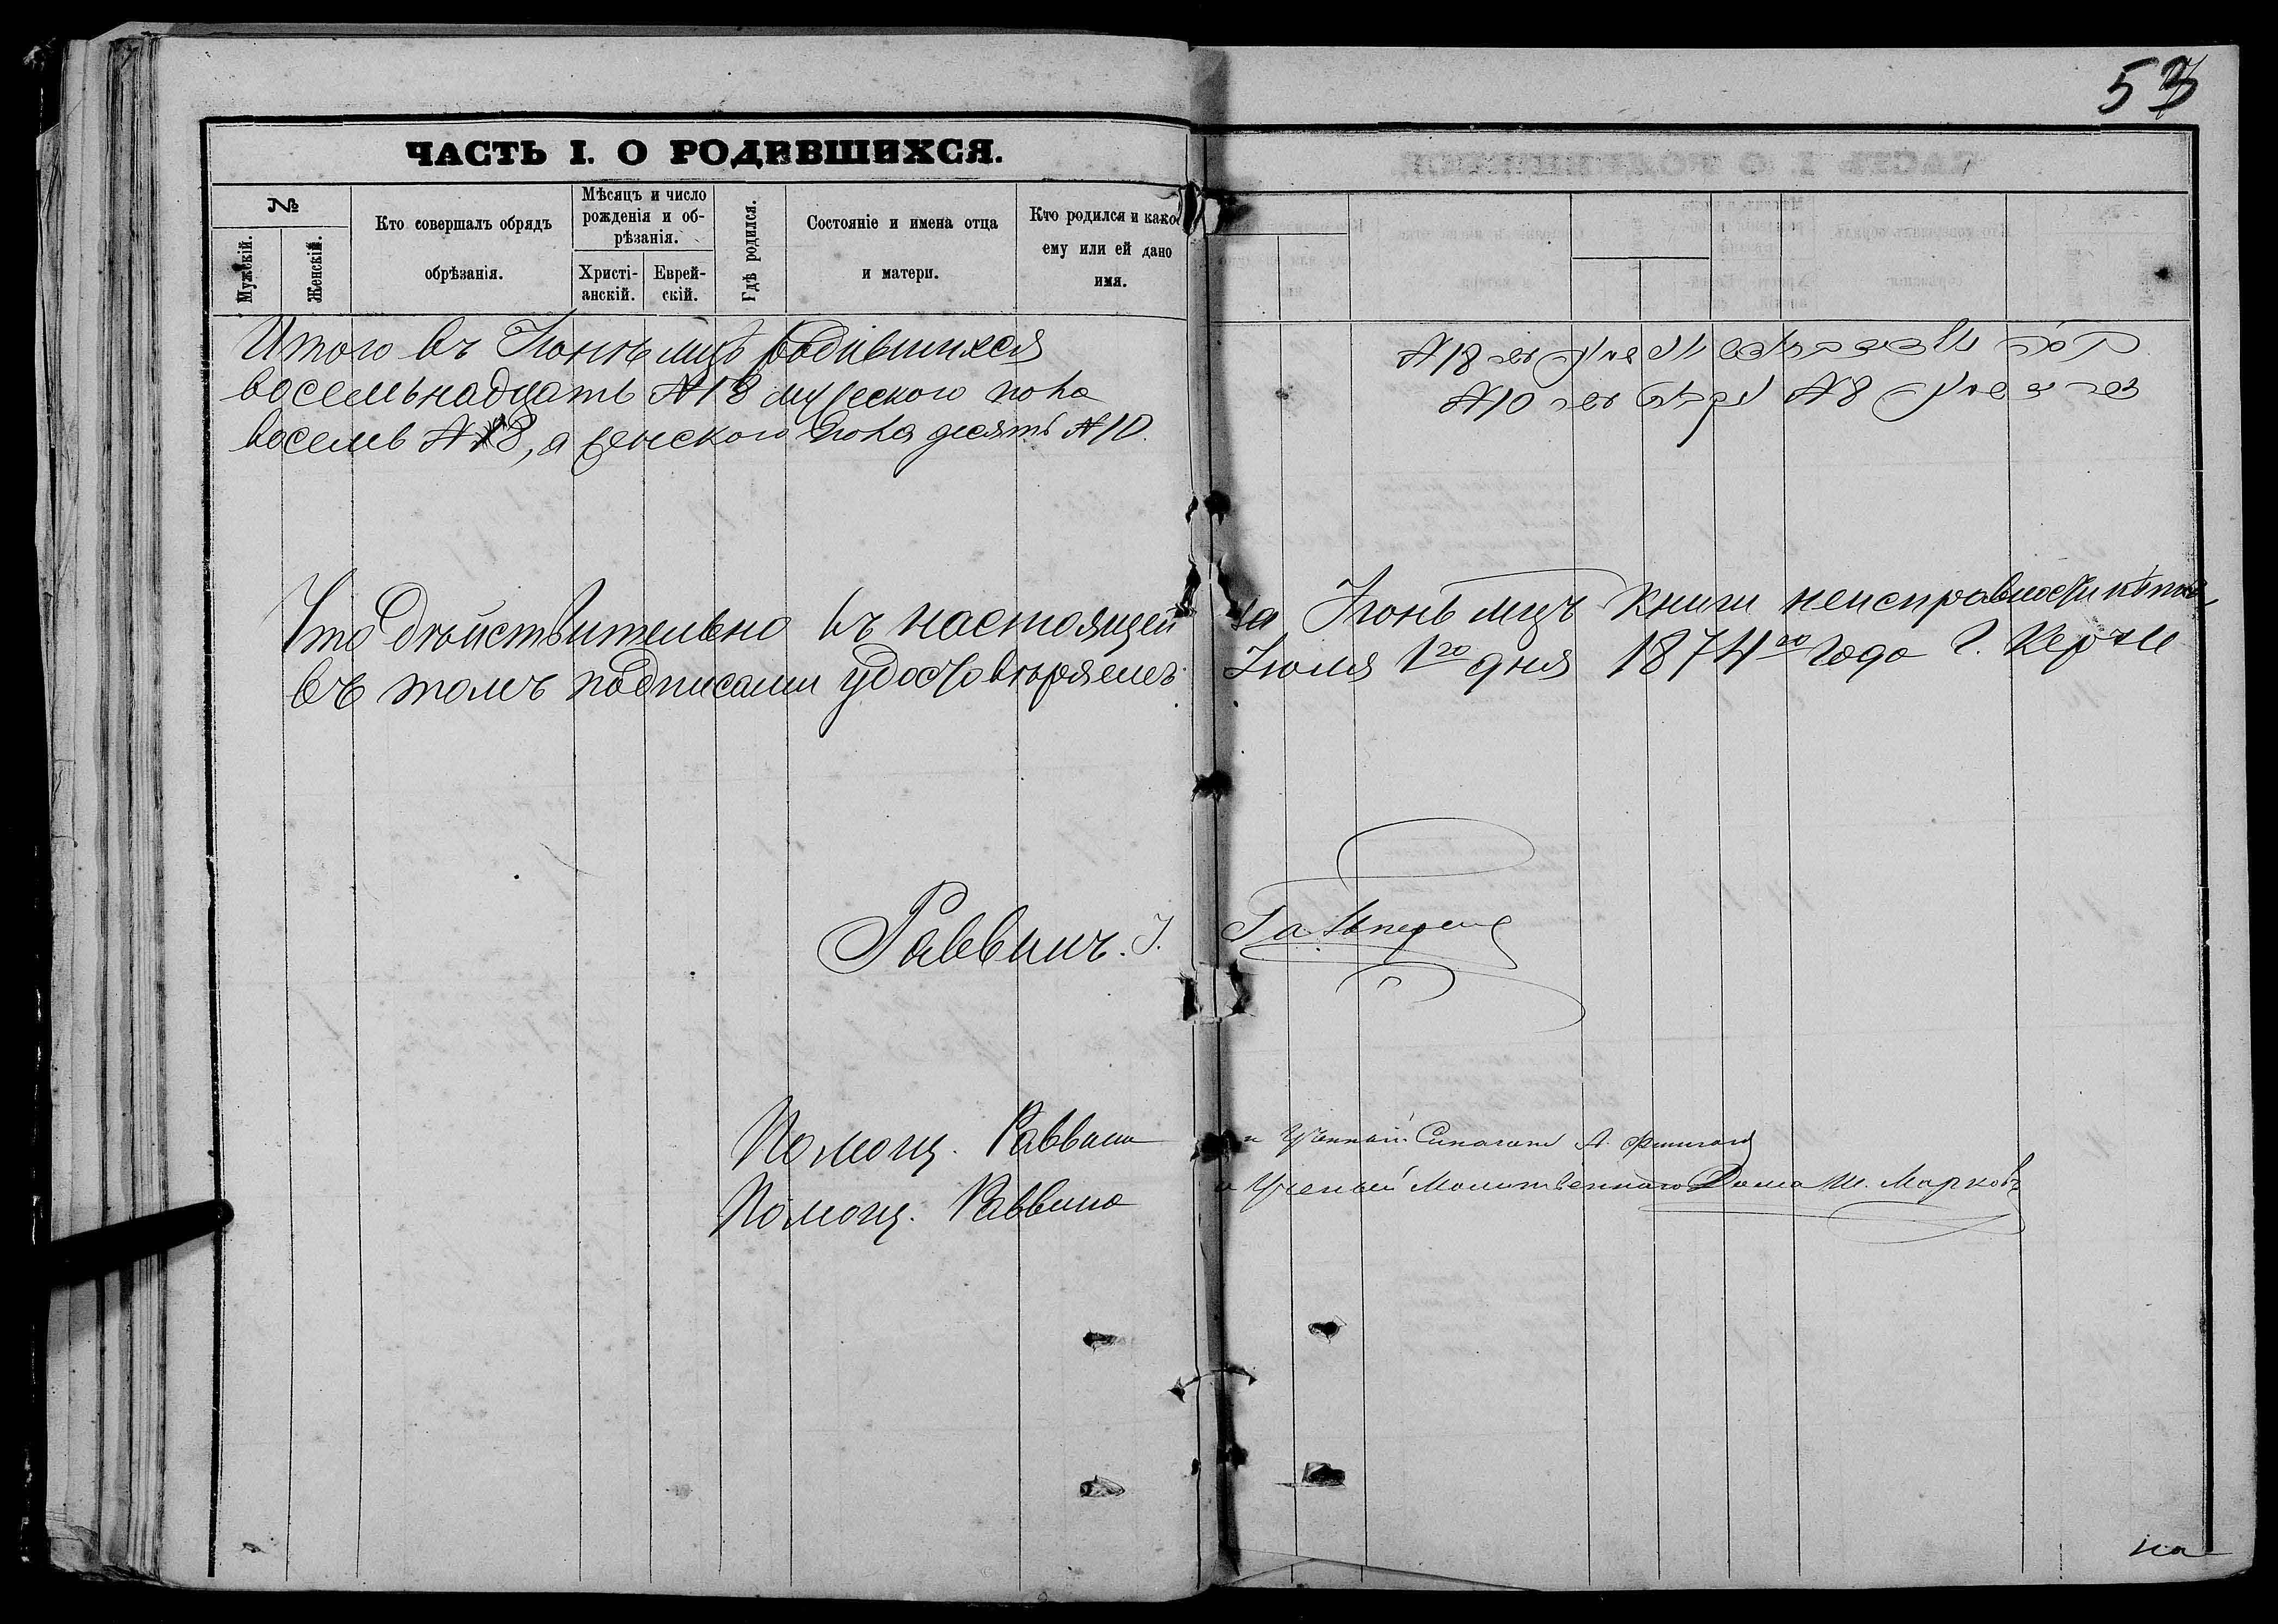 53
ЧАСТЬ I. О РОДИВШИХСЯ.
№
Мужскій.
Женскій.
Кто совершалъ обрядъ
обрѣзанія.
Мѣсяцъ и число
рожденія и об-
рѣзанія.
Христі-
анскій.
Еврей-
скій.
Гдѣ родился.
Состояніе и имена отца
и матери.
Кто родился и како
ему или ей дано
имя.
Итого въ Іюнѣ мцѣ родившихся
восемьнадцать №18 мужескаго пола
восемь №8, а женскаго пола десять №10.
№18
№10 №8
Что дѣйствительно въ настоящей за Іюнь мцъ книги неисправности нѣтъ
въ томъ подписами удостовѣряемъ Іюля 1го дня 1874го года г. Керчи
Раввинъ. І. Гальперин
Помощ. Раввина и Ученый Синагоги А.
Помощ. Раввина и Ученый Молитвеннаго Дома Ш. Марковъ
на